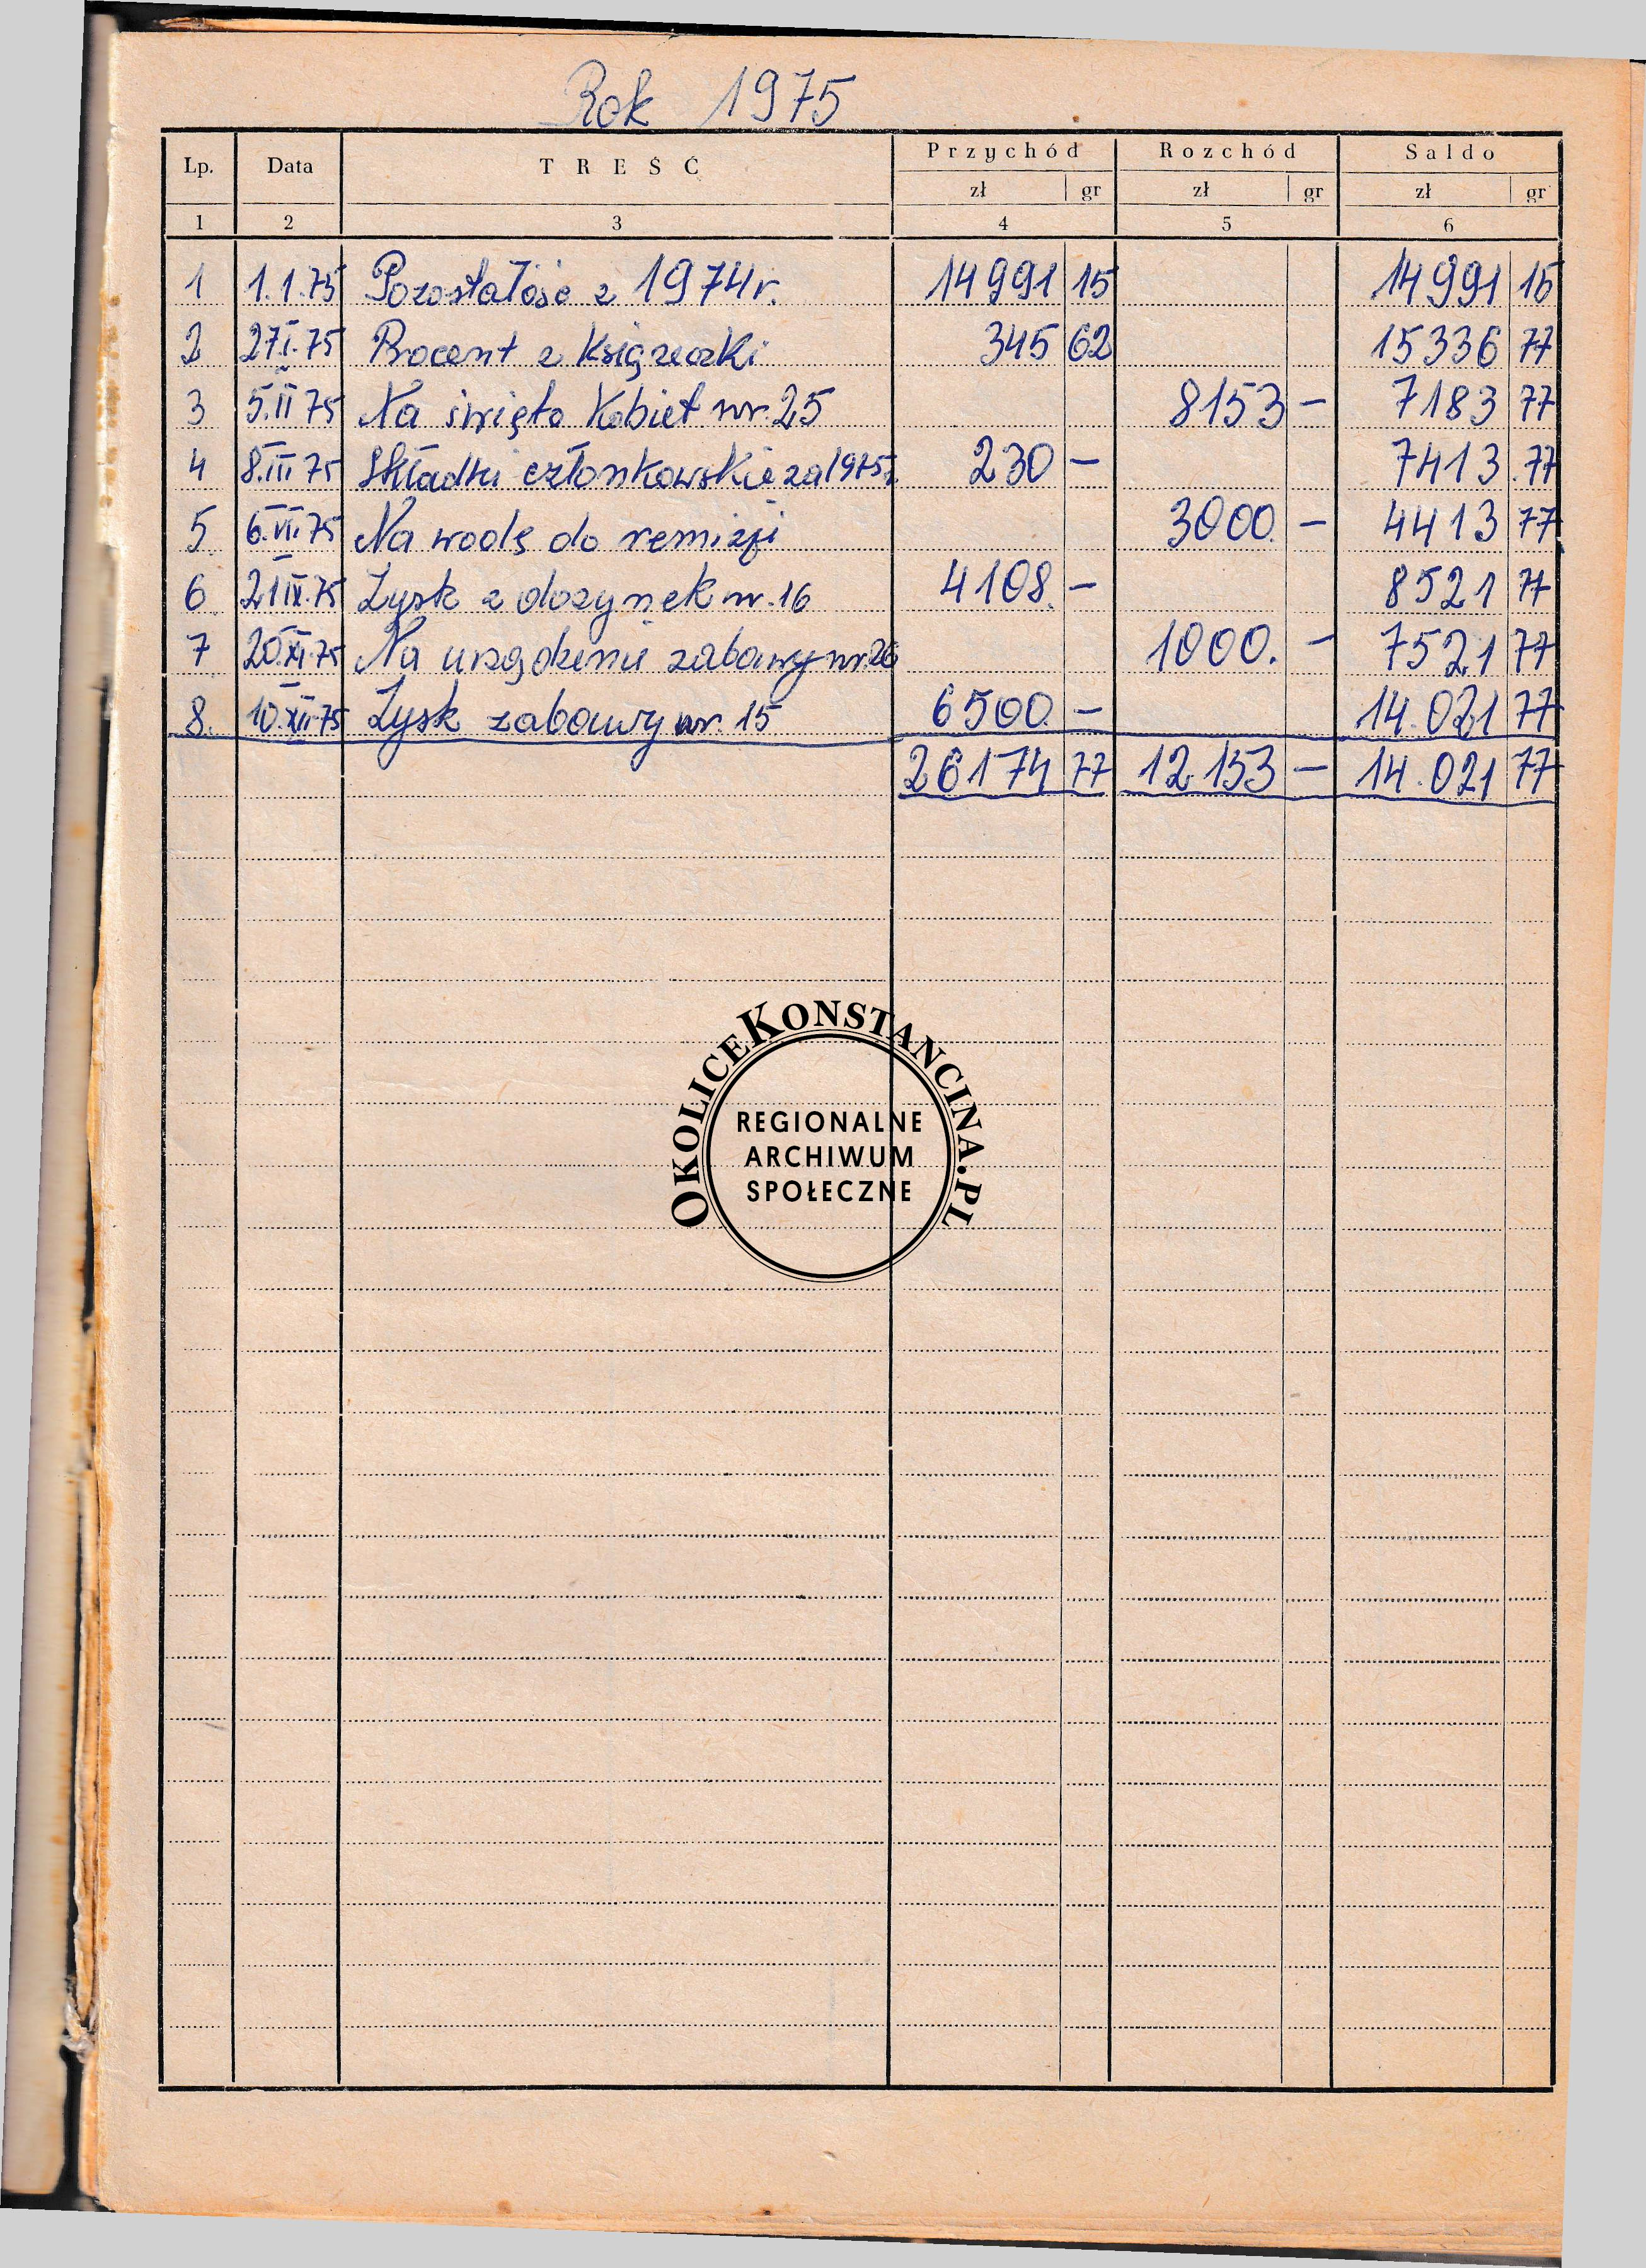 Rok 1975
Lp. Data TREŚĆ Przychód Rozchód Saldo
zł gr zł gr zł gr
1 2 3 4 5 6
1 1.1.75 Pozostałość z 1974r. 14991 15 14991 15
2 27.I.75 Procent z książeczki 345 62 15336 77
3 5.II 75 Na święto Kobiet nr. 25 8153 – 7183 77
4 8.III 75 Składki członkowskie za 1975r. 230 – 7413 77
5 6.VII.75 Na wodę do remizji 3000. – 4413 77
6 21 IX.75 Zysk z dożynek nr. 16 4108. – 8521 77
7 20.XI.75 Na urządzenie zabawy nr. 26 1000. – 7521 77
8. 10.XII.75 Zysk zabawy nr. 15 6500. – 14.021 77
26174 77 12.153 – 14.021 77
OKOLICEKONSTANCINA.PL
REGIONALNE
ARCHIWUM
SPOŁECZNE